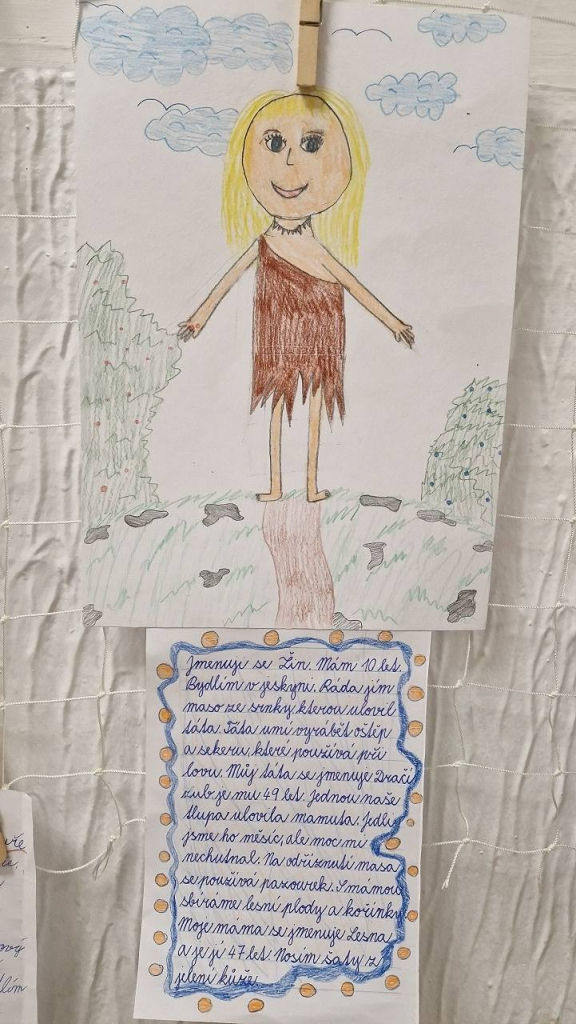 Jmenuji se Žin. Mám 10 let.
Bydlím v jeskyni. Ráda jím
maso ze srnky, kterou ulovil
táta. Táta umí vyrábět oštěp
a sekeru, které používá při
lovu. Můj táta se jmenuje Dračí
zub, je mu 49 let. Jednou naše
tlupa ulovila mamuta. Jedli
jsme ho měsíc, ale moc mi
nechutnal. Na odříznutí masa
se používá pazourek. S mámou
sbíráme lesní plody a kořínky.
Moje máma se jmenuje Lesna
a je jí 47 let. Nosím šaty z
jelení kůže.